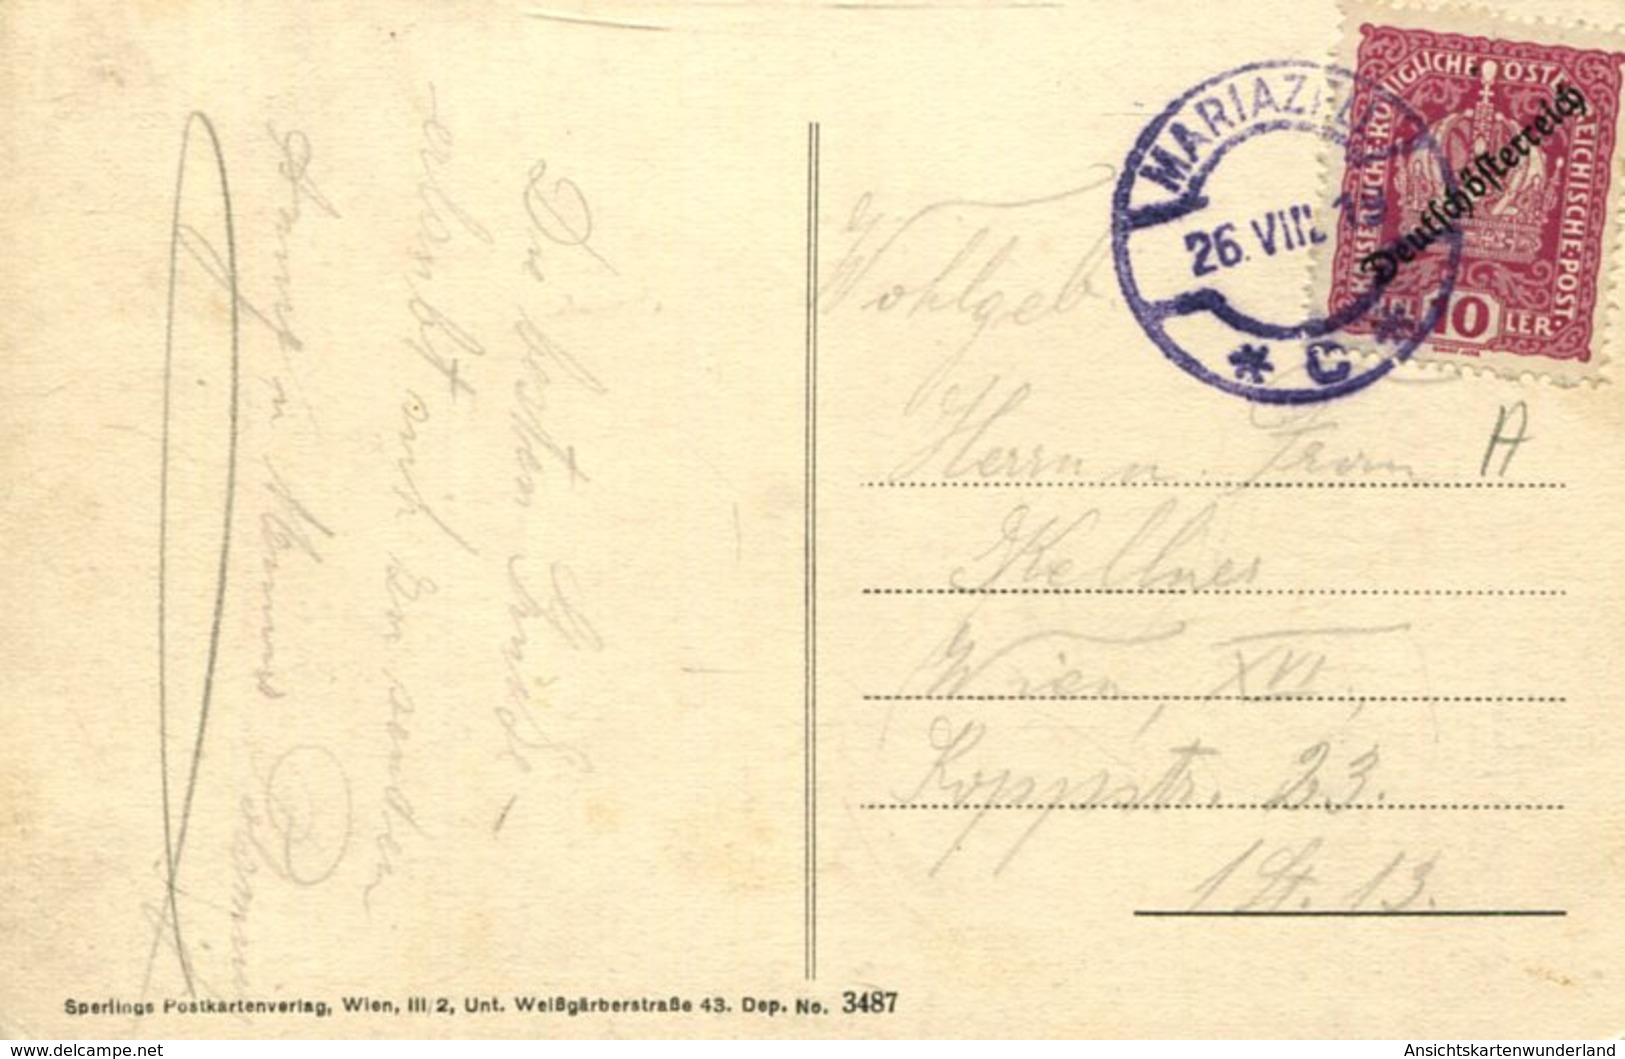 MARIAZELL
26. VIII. 1
* C *
KAISERLICHE KÖNIGLICHE ÖSTERREICHISCHE POST
Deutschösterreich
10
HELLER
A
Wohlgeb.
Herrn u. Frau
Kellner
Wien, XVI,
Koppstr. 23.
1 St. 13.
Die besten Grüße
erlaubt sich zu senden
Sperlings Postkartenverlag, Wien, III/2, Unt. Weißgärberstraße 43. Dep. No. 3487
www.delcampe.net
Ansichtskartenwunderland